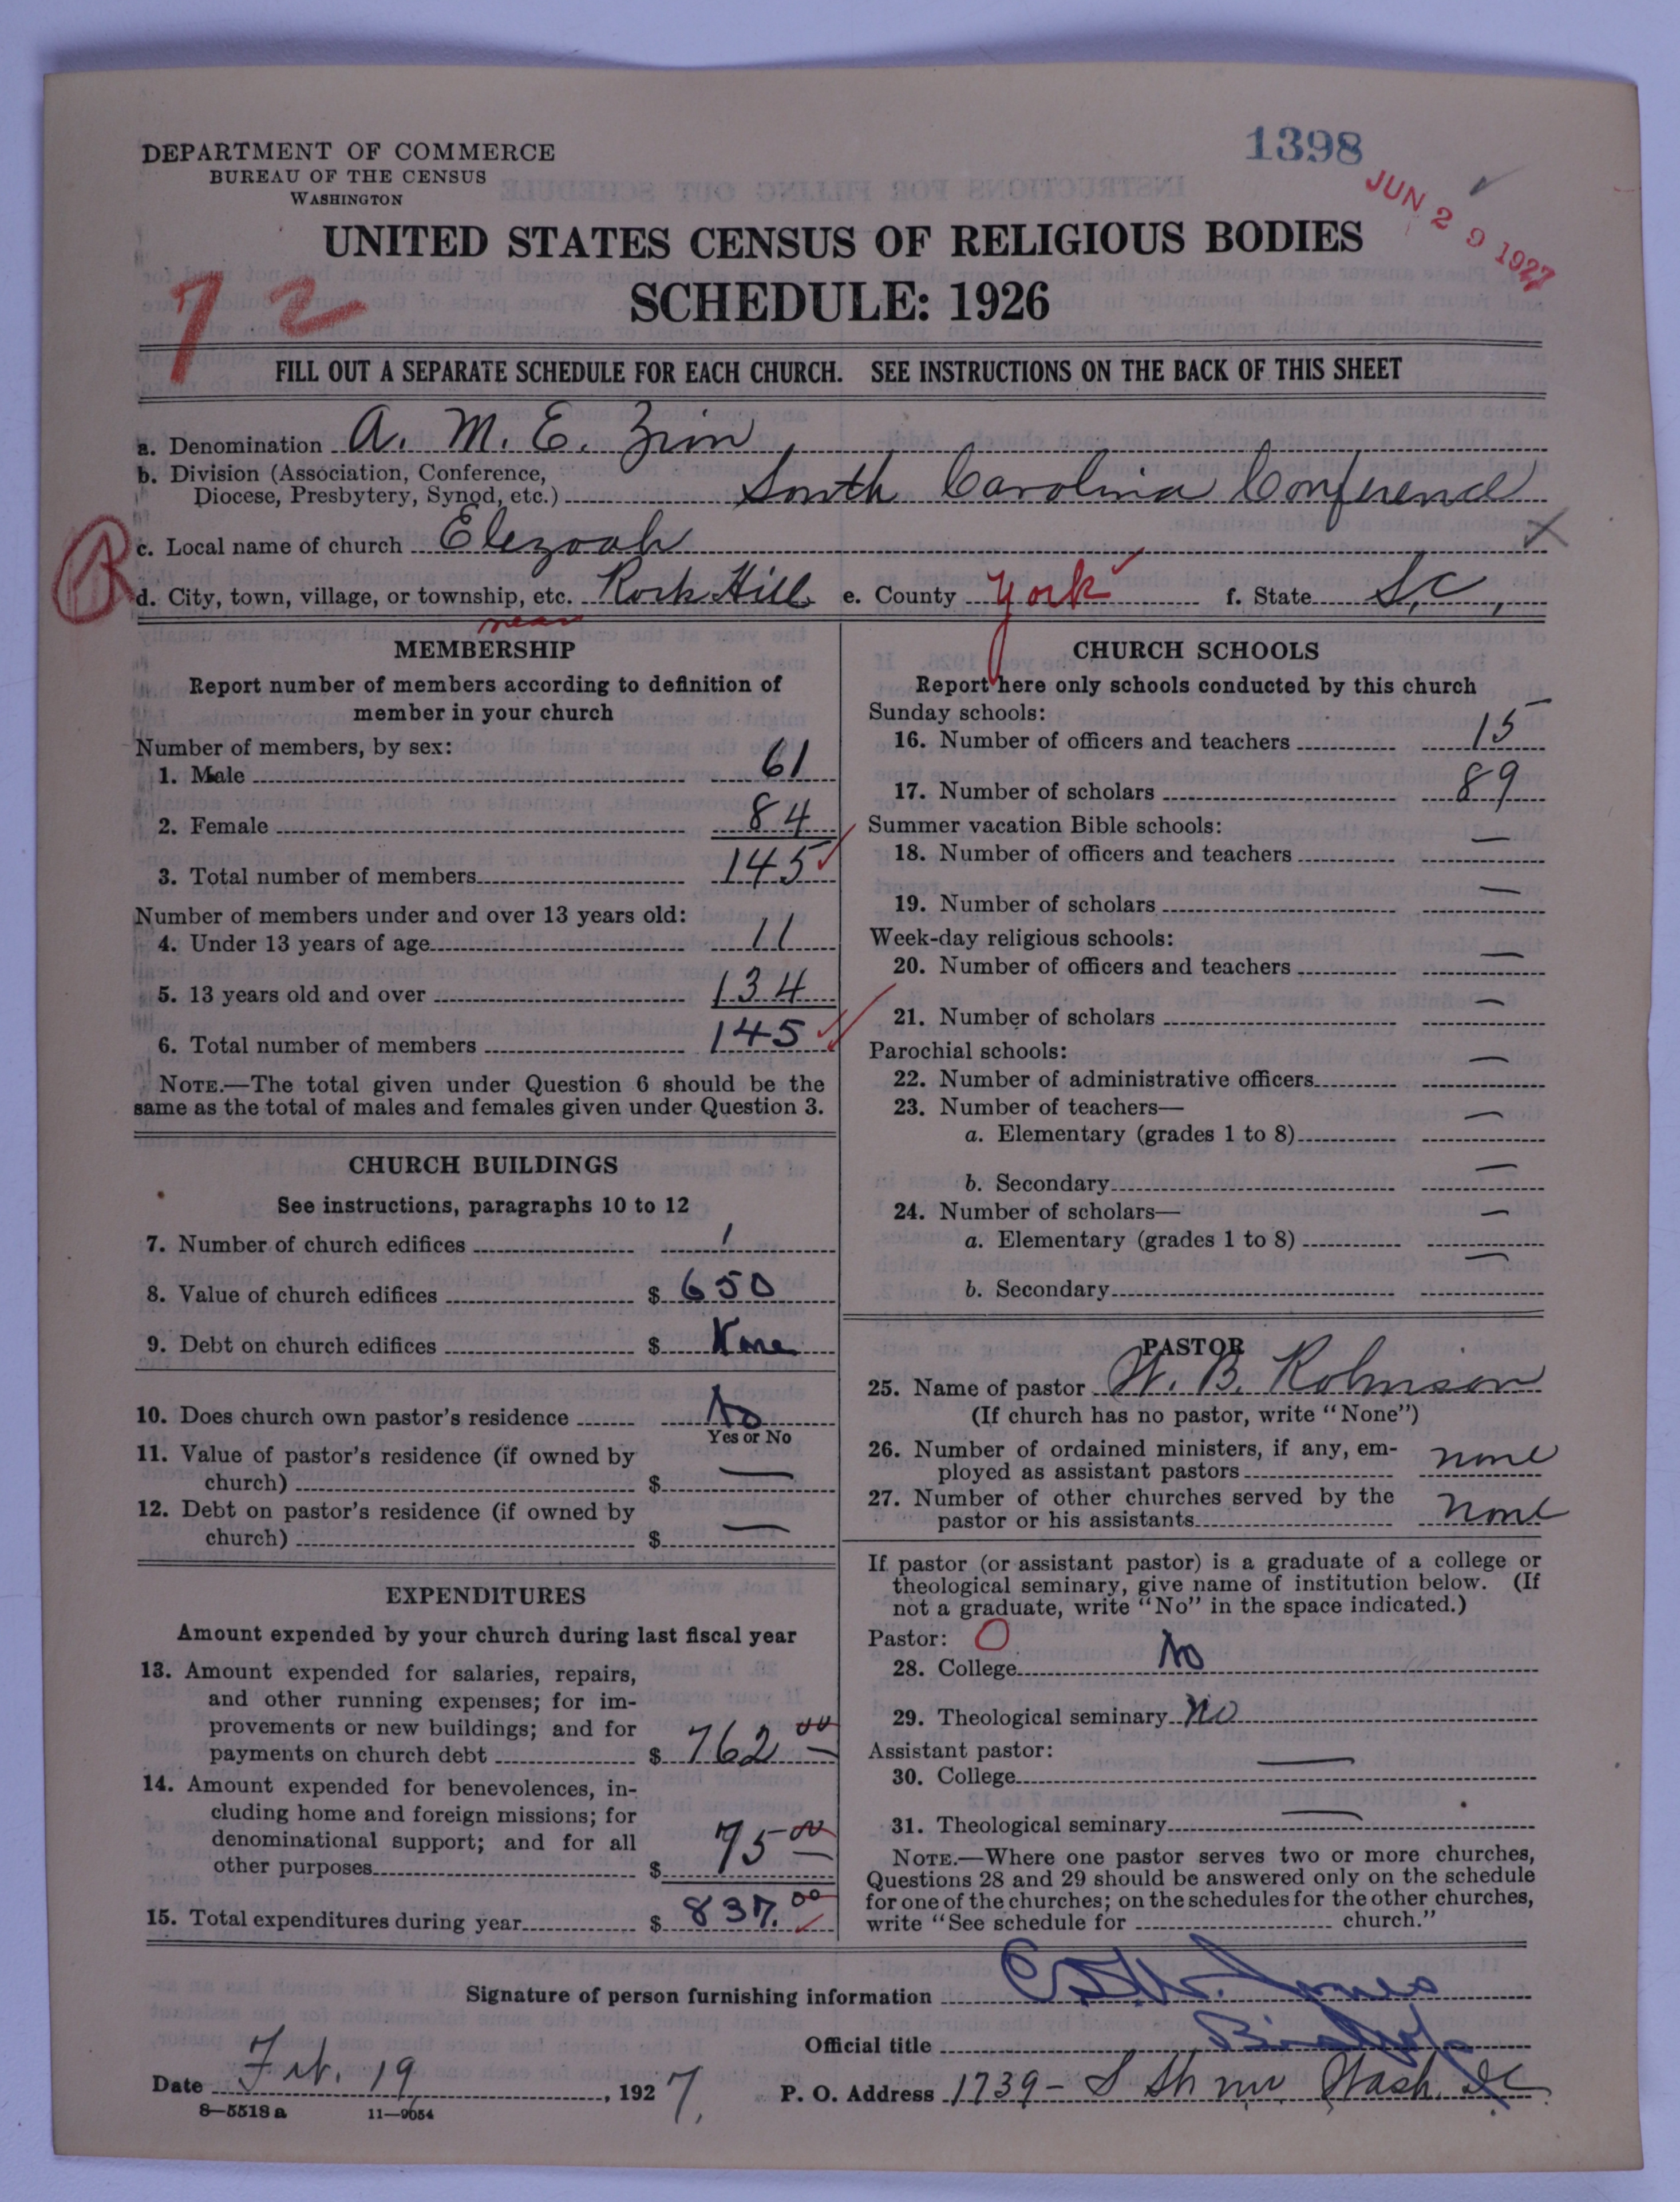 1398
JUN 29 1927
DEPARTMENT OF COMMERCE
BUREAU OF THE CENSUS
WASHINGTON
UNITED STATES CENSUS OF RELIGIOUS BODIES
SCHEDULE: 1926
72
FILL OUT A SEPARATE SCHEDULE FOR EACH CHURCH. SEE INSTRUCTIONS ON THE BACK OF THIS SHEET
a. Denomination A. M. E. Zion
b. Division (Association, Conference,
Diocese, Presbytery, Synod, etc.) South Carolina Conference
c. Local name of church Elezoah
d. City, town, village, or township, etc. Rock Hill e. County York f. State S.C.
near
MEMBERSHIP
Report number of members according to definition of
member in your church
Number of members, by sex:
1. Male 61
2. Female 84
3. Total number of members 145
Number of members under and over 13 years old:
4. Under 13 years of age 11
5. 13 years old and over 134
6. Total number of members 145
NOTE.—The total given under Question 6 should be the
same as the total of males and females given under Question 3.
CHURCH BUILDINGS
See instructions, paragraphs 10 to 12
7. Number of church edifices 1
8. Value of church edifices $ 650
9. Debt on church edifices $ None
10. Does church own pastor's residence No
Yes or No
11. Value of pastor's residence (if owned by
church) $ —
12. Debt on pastor's residence (if owned by
church) $ —
EXPENDITURES
Amount expended by your church during last fiscal year
13. Amount expended for salaries, repairs,
and other running expenses; for im-
provements or new buildings; and for
payments on church debt $ 762 00
14. Amount expended for benevolences, in-
cluding home and foreign missions; for
denominational support; and for all
other purposes $ 75 00
15. Total expenditures during year $ 837.00
CHURCH SCHOOLS
Report here only schools conducted by this church
Sunday schools:
16. Number of officers and teachers 15
17. Number of scholars 89
Summer vacation Bible schools:
18. Number of officers and teachers —
19. Number of scholars —
Week-day religious schools:
20. Number of officers and teachers —
21. Number of scholars —
Parochial schools:
22. Number of administrative officers —
23. Number of teachers—
a. Elementary (grades 1 to 8) —
b. Secondary —
24. Number of scholars—
a. Elementary (grades 1 to 8) —
b. Secondary —
PASTOR
25. Name of pastor W. B. Robinson
(If church has no pastor, write "None")
26. Number of ordained ministers, if any, em-
ployed as assistant pastors none
27. Number of other churches served by the
pastor or his assistants none
If pastor (or assistant pastor) is a graduate of a college or
theological seminary, give name of institution below. (If
not a graduate, write "No" in the space indicated.)
Pastor: O
28. College No
29. Theological seminary No
Assistant pastor:
30. College —
31. Theological seminary —
NOTE.—Where one pastor serves two or more churches,
Questions 28 and 29 should be answered only on the schedule
for one of the churches; on the schedules for the other churches,
write "See schedule for church."
Signature of person furnishing information Jones
Official title Bishop
Date Feb. 19, 1927. P. O. Address 1739- S St. nw Wash. DC
8-5518 a 11-9054